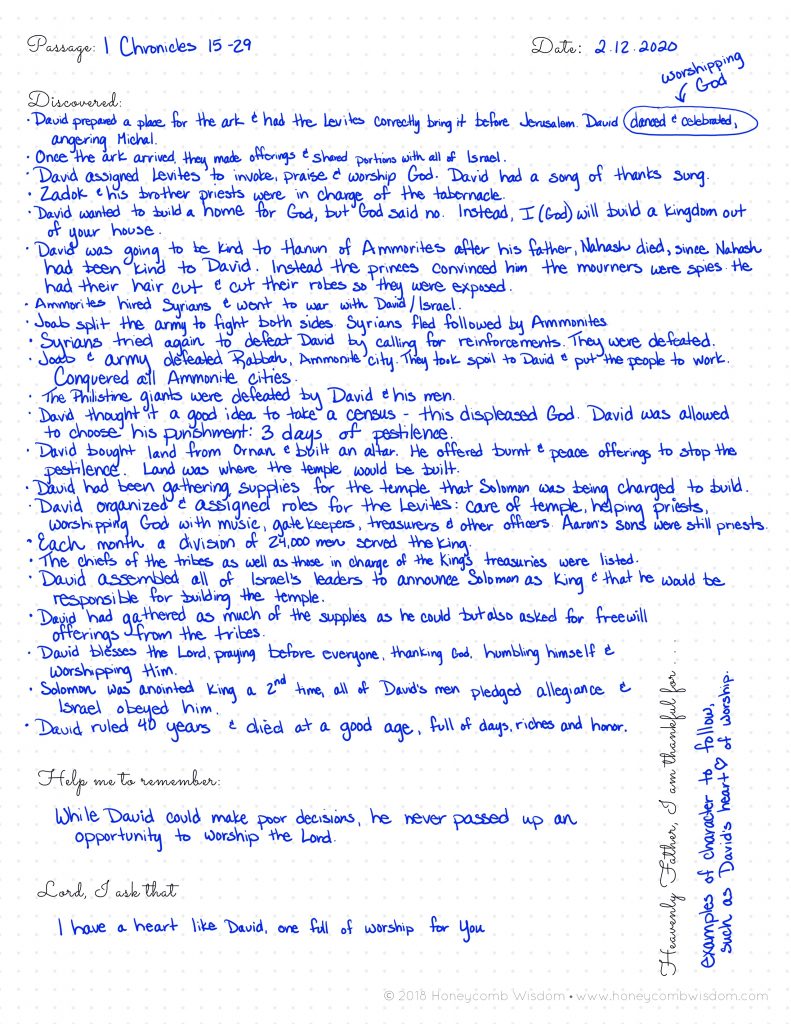 Passage: 1 Chronicles 15-29
Date: 2.12.2020
worshipping
God
Discovered:
· David prepared a place for the ark & had the Levites correctly bring it before Jerusalem. David danced & celebrated,
angering Michal.
· Once the ark arrived, they made offerings & shared portions with all of Israel.
· David assigned Levites to invoke, praise & worship God. David had a song of thanks sung.
· Zadok & his brother priests were in charge of the tabernacle.
· David wanted to build a home for God, but God said no. Instead, I (God) will build a kingdom out
of your house.
· David was going to be kind to Hanun of Ammorites after his father, Nahash died, since Nahash
had been kind to David. Instead the princes convinced him the mourners were spies. He
had their hair cut & cut their robes so they were exposed.
· Ammorites hired Syrians & went to war with David/Israel.
· Joab split the army to fight both sides. Syrians fled followed by Ammonites
· Syrians tried again to defeat David by calling for reinforcements. They were defeated.
· Joab & army defeated Rabbah, Ammonite city. They took spoil to David & put the people to work.
Conquered all Ammonite cities.
· The Philistine giants were defeated by David & his men.
· David thought it a good idea to take a census - this displeased God. David was allowed
to choose his punishment: 3 days of pestilence.
· David bought land from Ornan & built an altar. He offered burnt & peace offerings to stop the
pestilence. Land was where the temple would be built.
· David had been gathering supplies for the temple that Solomon was being charged to build.
· David organized & assigned roles for the Levites: care of temple, helping priests,
worshipping God with music, gate keepers, treasurers & other officers. Aaron's sons were still priests.
· Each month a division of 24,000 men served the king.
· The chiefs of the tribes as well as those in charge of the King's treasuries were listed.
· David assembled all of Israel's leaders to announce Solomon as King & that he would be
responsible for building the temple.
· David had gathered as much of the supplies as he could but also asked for freewill
offerings from the tribes.
· David blesses the Lord, praying before everyone, thanking God, humbling himself &
worshipping Him.
· Solomon was anointed King a 2nd time, all of David's men pledged allegiance &
Israel obeyed him.
· David ruled 40 years & died at a good age, full of days, riches and honor.
Help me to remember:
While David could make poor decisions, he never passed up an
opportunity to worship the Lord.
Lord, I ask that
I have a heart like David, one full of worship for You
Heavenly Father, I am thankful for ...
examples of character to follow,
such as David's heart ♡ of worship.
© 2018 Honeycomb Wisdom • www.honeycombwisdom.com